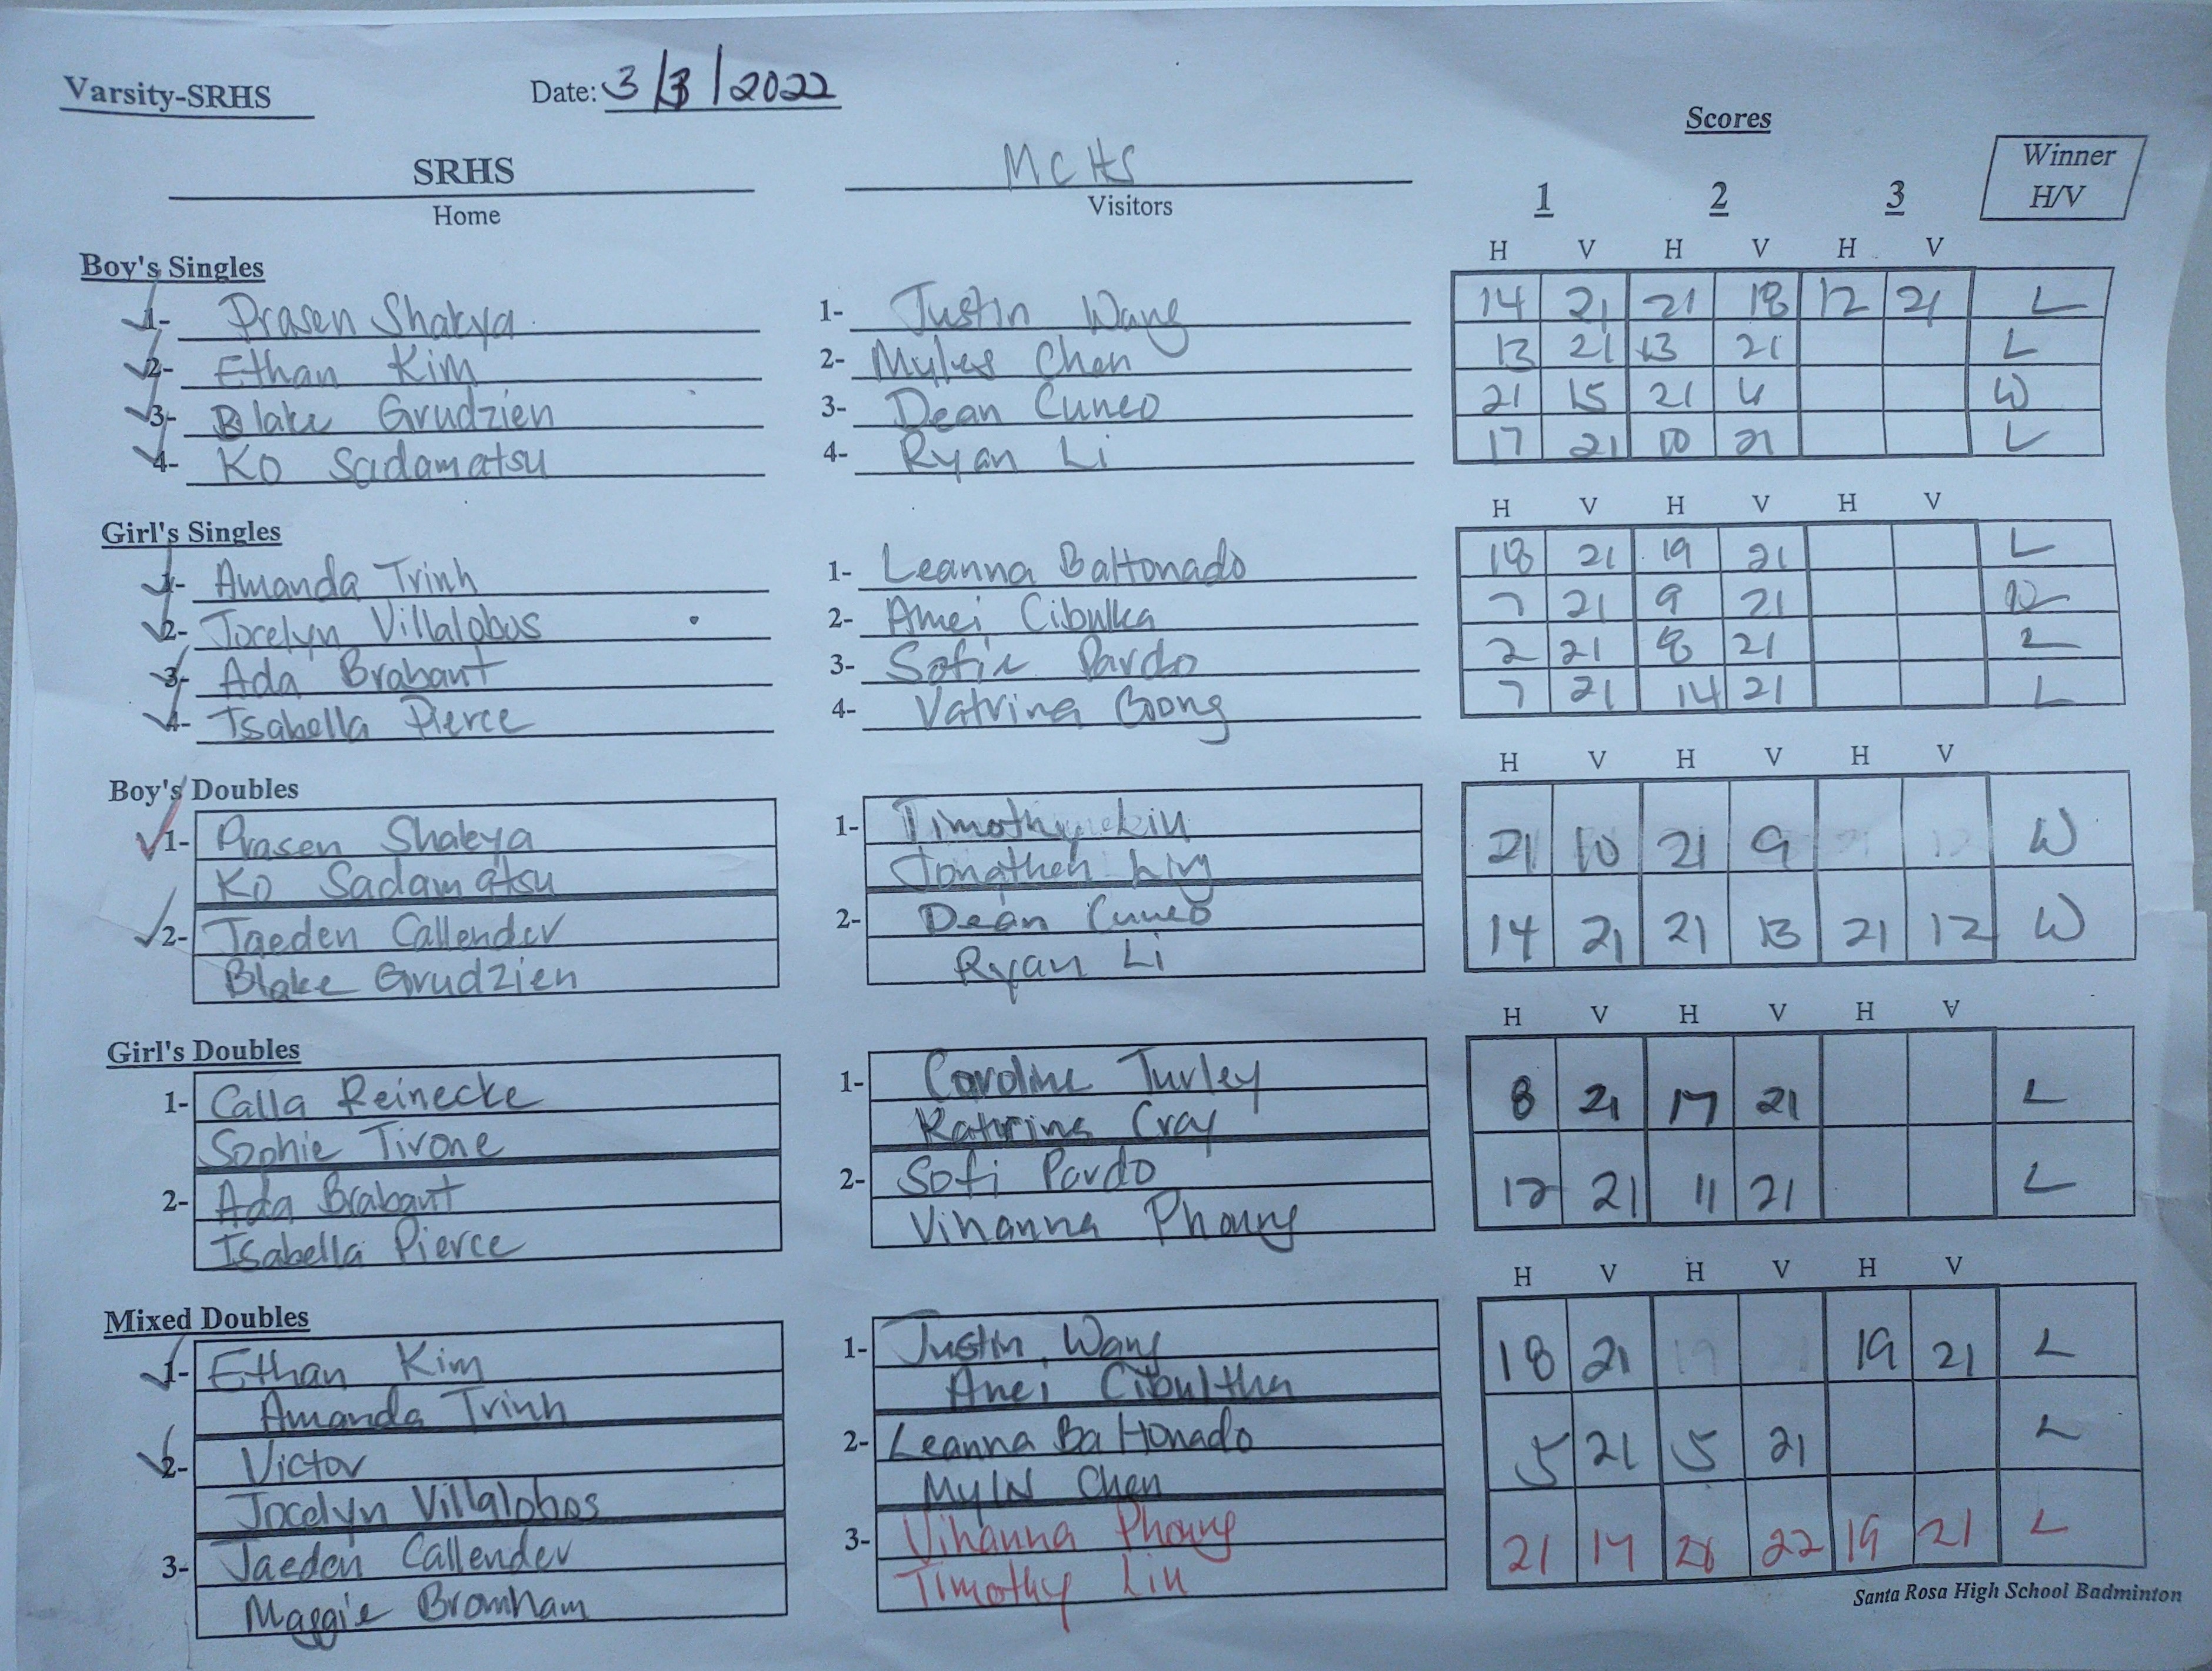 Varsity-SRHS Date: 3/3/2022
Scores
SRHS MCHS Winner
Home Visitors 1 2 3 H/V
H V H V H V
Boy's Singles
1- Prasen Shakya 1- Justin Wang 14 21 21 18 12 21 L
2- Ethan Kim 2- Myles Chen 13 21 13 21 L
3- Blake Grudzien 3- Dean Cuneo 21 15 21 W
4- Ko Sadamatsu 4- Ryan Li 17 21 10 21 L
H V H V H V
Girl's Singles
1- Amanda Trinh 1- Leanna Baltonado 18 21 19 21 L
2- Jocelyn Villalobos 2- Amei Cibulka 7 21 9 21
3- Ada Brabant 3- Sofie Pardo 2 21 8 21 L
4- Isabella Pierce 4- Vatrina 7 21 14 21 L
H V H V H V
Boy's Doubles
1- Prasen Shakya 1- Timothy Lin 21 10 21 9 W
Ko Sadamatsu Jonathen
2- Jaeden Callender 2- Dean Cuneo 14 21 21 13 21 12 W
Blake Grudzien Ryan Li
H V H V H V
Girl's Doubles
1- Calla Reinecke 1- Caroline Turley 8 21 17 21 L
Sophie Tirone Katrina Cray
2- Ada Brabant 2- Sofi Pardo 12 21 11 21 L
Isabella Pierce Vihanna Phoung
H V H V H V
Mixed Doubles
1- Ethan Kim 1- Justin Wang 18 21 19 21 L
Amanda Trinh Anei Cibultha
2- Victor 2- Leanna Baltonado 5 21 5 21 L
Jocelyn Villalobos Chen
3- Jaeden Callender 3- Vihanna Phoung 21 17 22 19 21 L
Maggie Bromham Timothy Lin
Santa Rosa High School Badminton